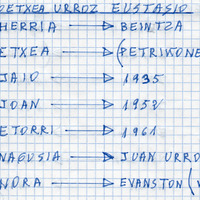 OETXEA URROZ EUSTASIO
HERRIA → BEINTZA
ETXEA → (PETRIKONE
JAIO → 1935
JOAN → 1952
ETORRI → 1961
NAGUSIA → JUAN URRO
NORA → EVANSTON (